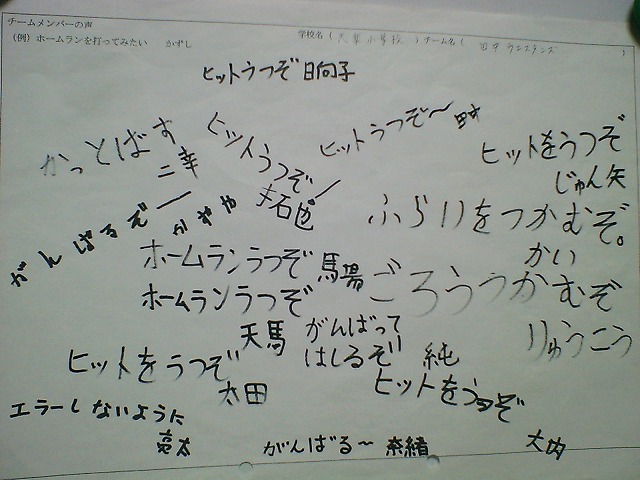 チームメンバーの声
(例)ホームランを打ってみたい かずし
学校名( 小学校 )チーム名( )
ヒットうつぞ 日向子
かっとばす
二幸
ヒットうつぞー
拓也
ヒットうつぞ〜
ヒットをうつぞ
じゅん矢
がんばるぞー
かずや
ふらいをつかむぞ。
かい
ホームランうつぞ 馬場
ホームランうつぞ
天馬
ごろうつかむぞ
りゅうこう
がんばって
はしるぞ! 純
ヒットをうつぞ
太田
ヒットをうつぞ
大内
エラーしないように
亮太
がんばる〜 奈緒